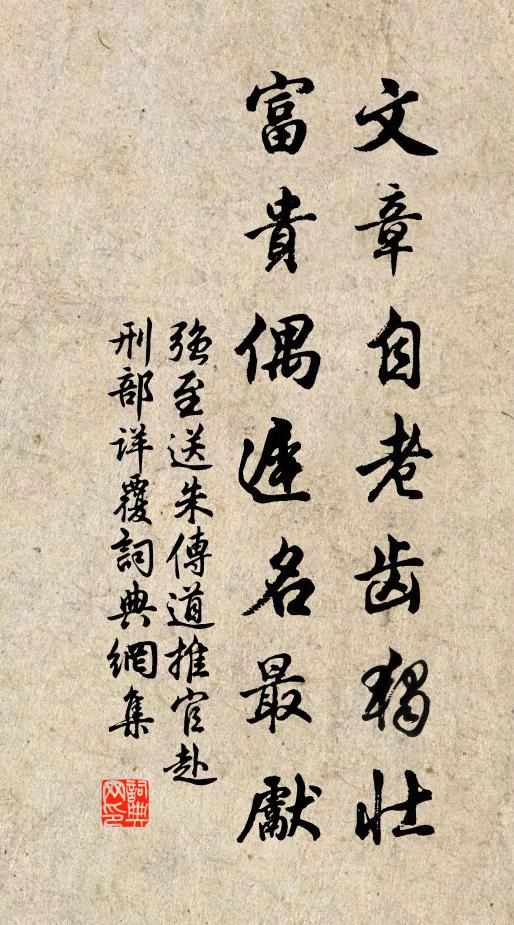 文章自老齿獨壮
富貴偶遲名最獻
强至送朱傳道推官赴
刑部詳覆詞典網集
詞典网印